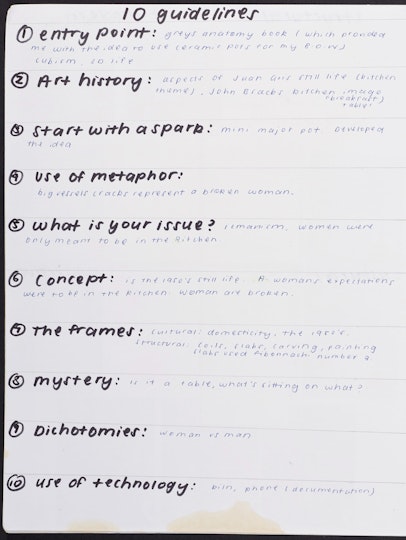 10 guidelines
① entry point: greys anatomy book (which provided
me with the idea to use ceramic pots for my B.O.W)
cubism, so life
② Art history: aspects of Juan Gris still life (kitchen
themes), John Bracks kitchen image
(breakfast)
table)
③ start with a spark: mini major pot. Developed
the idea
④ use of metaphor:
big vessels cracks represent a broken woman.
⑤ what is your issue? women were
only meant to be in the kitchen
⑥ concept: is the 1950's still life. A womans expectations
were to be in the kitchen. woman are broken.
⑦ the frames: cultural: domesticity, the 1950's.
structural: coils, slabs, carving, painting
slabs used number 2
⑧ mystery: is it a table, what's sitting on what?
⑨ Dichotomies: woman vs man
⑩ use of technology: kiln, phone (documentation)